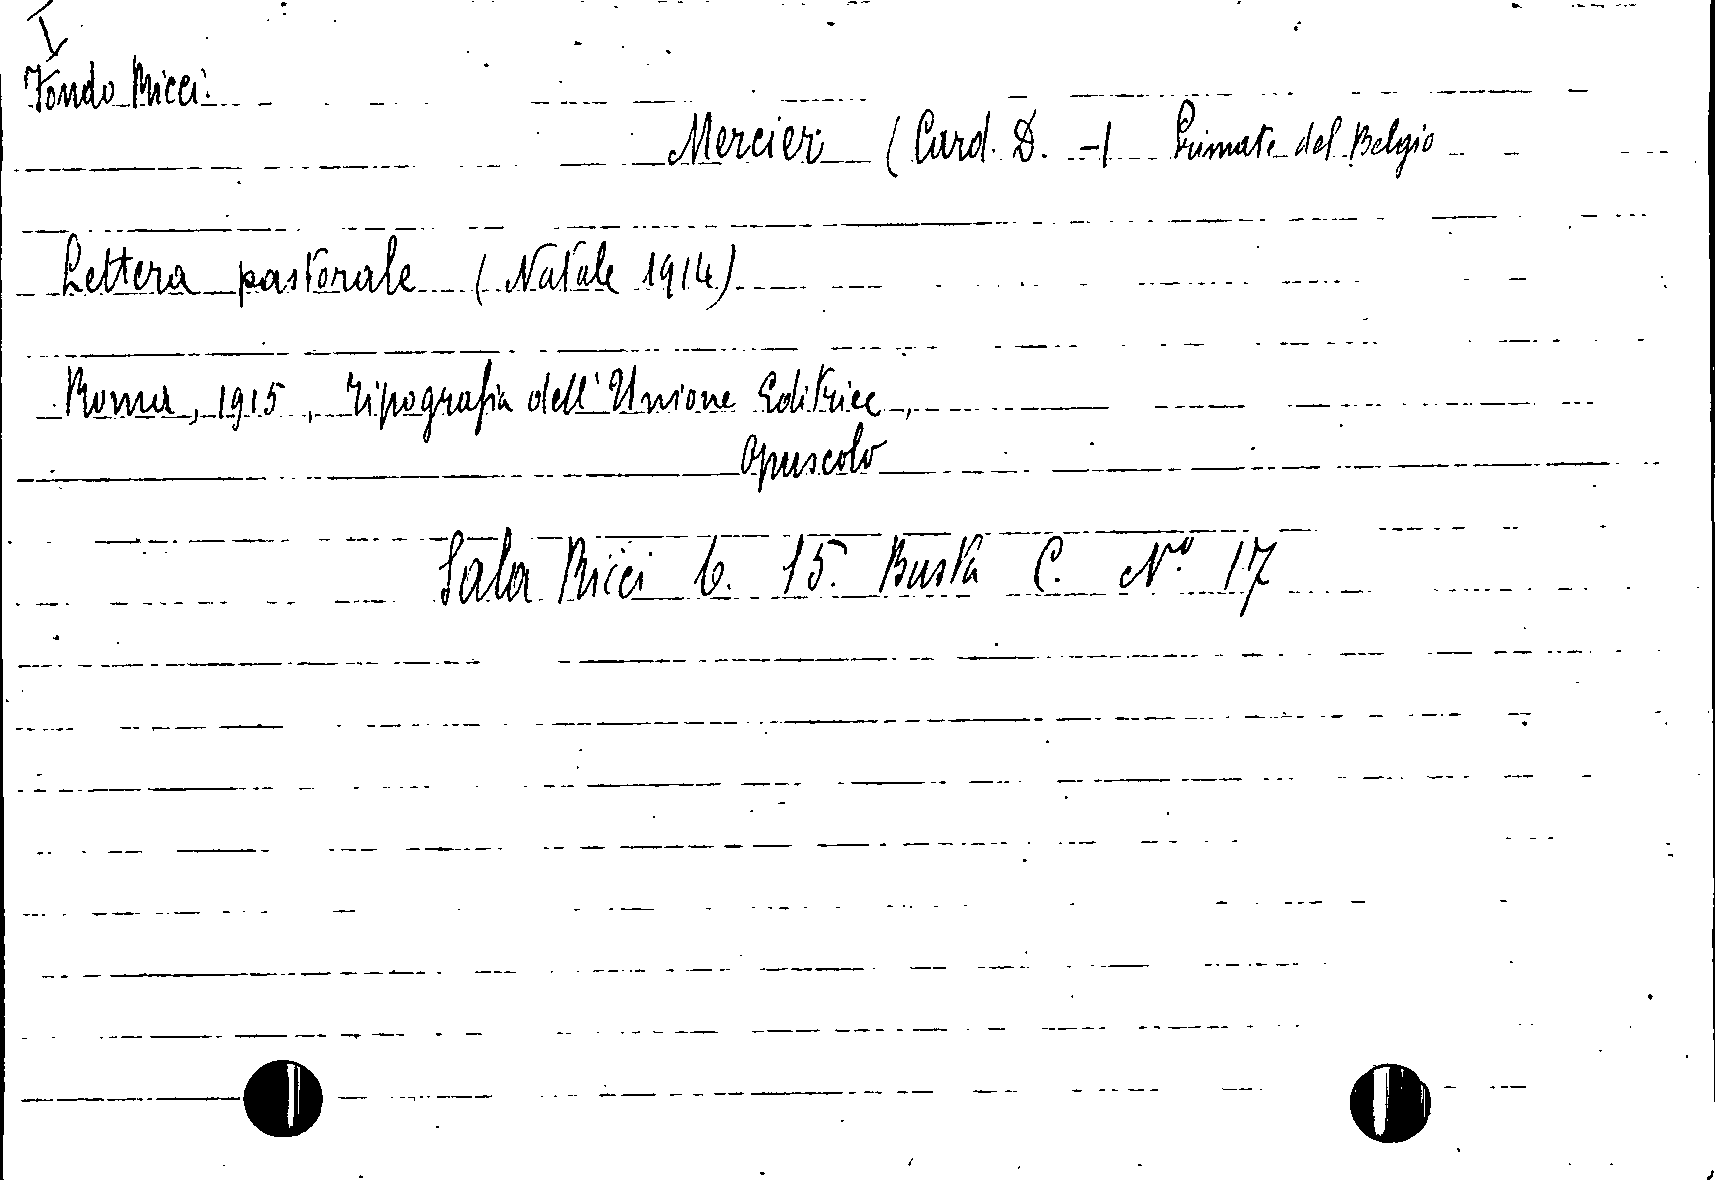 I
Fondo Ricci.
Mercier (Card. D. -) Primate del Belgio
Lettera pastorale (Natale 1914)
Roma, 1915, Tipografia dell'Unione Editrice,
opuscolo
Sala Ricci 6. 15. Busta C. N.º 17